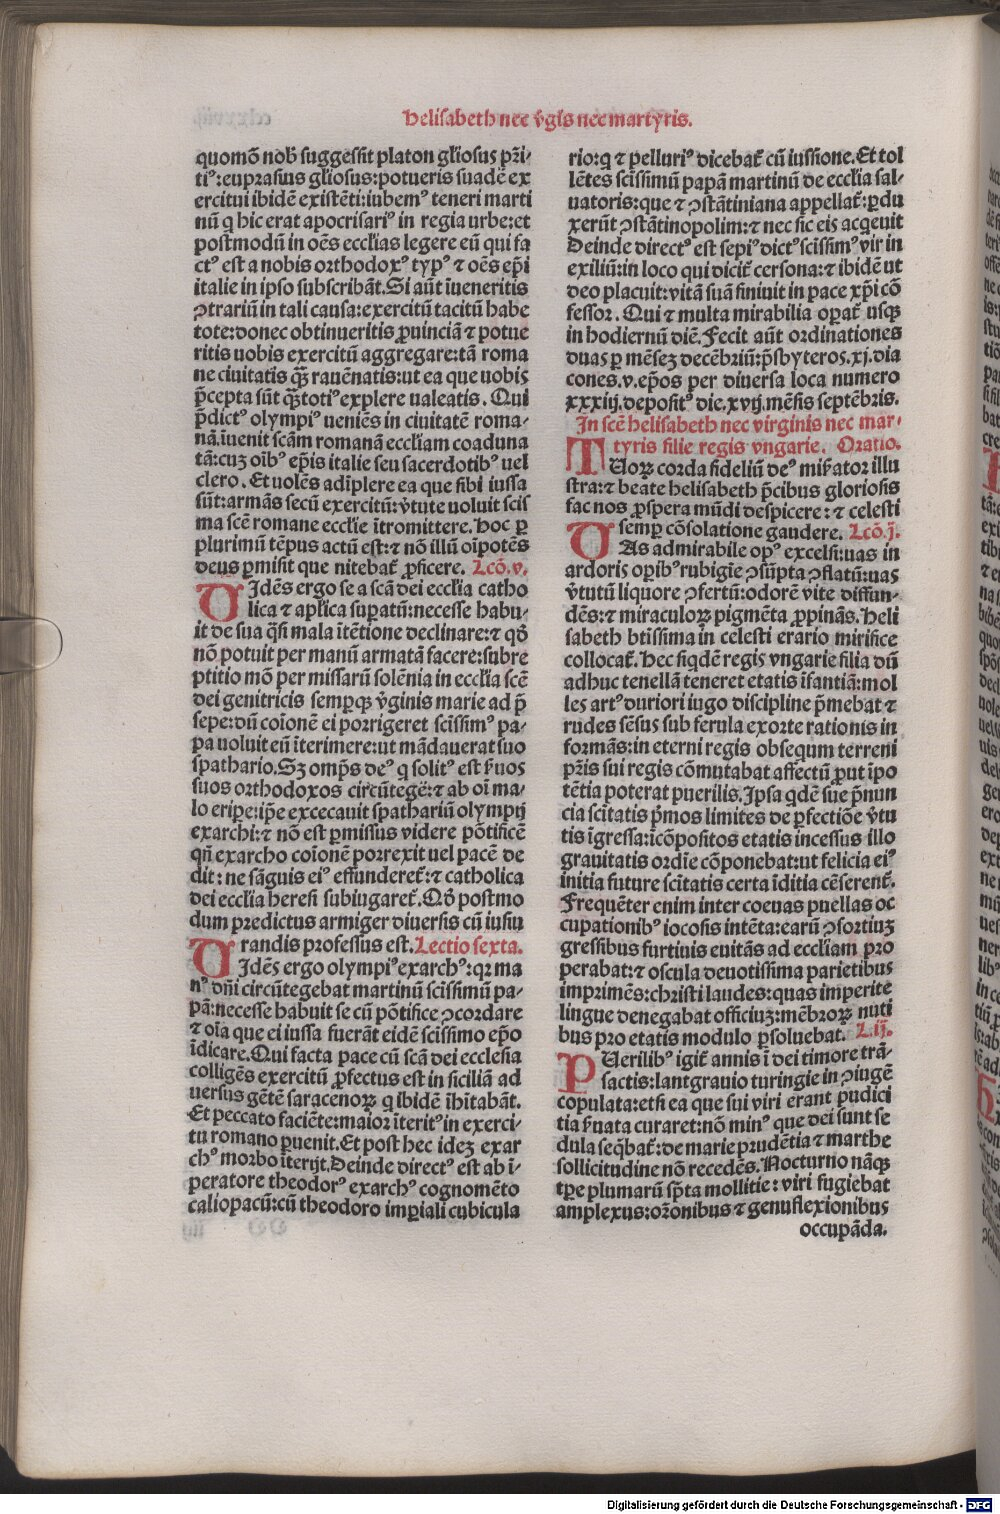 Helisabeth nec v̾gĩs nec martyris.
quomõ nob̾ suggessit platon gl̃iosus pr̃i-
ti⁹: euprasius gl̃iosus: potueris suadẽ ex
ercitui ibidẽ existẽti: iubem⁹ teneri marti
nũ q hic erat apocrisari⁹ in regia urbe: et
postmodũ in oẽs eccl̃ias legere eũ qui fa
ct⁹ est a nobis orthodox⁹ typ⁹ ⁊ oẽs ep̃i
italie in ipso subscribãt. Si aũt iueneritis
ↄtrariũ in tali causa: exercitũ tacitũ habe
tote: donec obtinueritis ꝓuinciã ⁊ potue
ritis uobis exercitũ aggregare: tã roma
ne ciuitatis qꝫ rauẽnatis: ut ea que uobis
p̃cepta sũt qꝫtoti⁹ explere ualeatis. Qui
p̃dict⁹ olympi⁹ ueniẽs in ciuitatẽ roma-
nã. iuenit scãm romanã eccl̃iam coaduna
tã: cuꝫ oĩb⁹ ep̃is italie seu sacerdotib⁹ uel
clero. Et uolẽs adĩplere ea que sibi iussa
sũt: armãs secũ exercitũ: v̾tute uoluit scis
ma scẽ romane eccl̃ie ĩtromittere. Hoc ꝑ
plurimũ tẽpus actũ est: ⁊ nõ illũ oĩpotẽs
deus ꝑmisit que nitebat̃ ꝓficere. Lcõ. v.
VIdẽs ergo se a scã dei eccl̃ia catho
lica ⁊ apl̃ica supatũ: necesse habu-
it de sua q̃si mala ĩtẽtione declinare: ⁊ qď
nõ potuit per manũ armatã facere: subre
ptitio mõ per missarũ solẽnia in eccl̃ia scẽ
dei genitricis semꝑqꝫ v̾ginis marie ad p̃
sepe: dũ coĩonẽ ei porrigeret scĩssim⁹ pa-
pa uoluit eũ ĩterimere: ut mãdauerat suo
spathario. Sꝫ omp̃s de⁹ q solit⁹ est s̾uos
suos orthodoxos circũtegẽ: ⁊ ab oĩ ma-
lo eripe: ip̃e excecauit spathariũ olympij
exarchi: ⁊ nõ est ꝑmissus videre põtificẽ
qñ exarcho coĩonẽ porrexit uel pacẽ de
dit: ne sãguis ei⁹ effunderet̃: ⁊ catholica
dei eccl̃ia heresi subiugaret̃. Qď postmo
dum predictus armiger diuersis cũ iusiu
randis professus est. Lectio sexta.
VIdẽs ergo olympi⁹ exarch⁹: qꝛ ma
n⁹ dñi circũtegebat martinũ scĩssimũ pa-
pã: necesse habuit se cũ põtifice ↄcordare
⁊ oĩa que ei iussa fuerãt eidẽ scĩssimo ep̃o
ĩdicare. Qui facta pace cũ scã dei ecclesia
colligẽs exercitũ ꝓfectus est in siciliã ad
uersus gẽtẽ saracenoꝝ q ibidẽ ĩhĩtabãt.
Et peccato faciẽte: maior ĩterit⁹ in exerci-
tu romano ꝑuenit. Et post hec ideꝫ exar
ch⁹ morbo ĩterijt. Deinde direct⁹ est ab ĩ-
peratore theodor⁹ exarch⁹ cognomẽto
caliopacũ: cũ theodoro imꝑiali cubicula
rio: q ⁊ pelluri⁹ dicebat̃ cũ iussione. Et tol
lẽtes scĩssimũ papã martinũ de eccl̃ia sal-
uatoris: que ⁊ ↄstãtiniana appellat̃: ꝑdu
xerũt ↄstãtinopolim: ⁊ nec sic eis acq̃euit
Deinde direct⁹ est sepi⁹ dict⁹ scĩssim⁹ vir in
exiliũ: in loco qui dicit̃ cersona: ⁊ ibidẽ ut
deo placuit: vitã suã finiuit in pace xp̃i cõ
fessor. Qui ⁊ multa mirabilia oꝑat̃ usqꝫ
in hodiernũ diẽ. Fecit aũt ordinationes
duas ꝑ mẽseꝫ decẽbriũ: p̃sbyteros. xj. dia
cones. v. ep̃os per diuersa loca numero
xxxiij. deposit⁹ die. xvij. mẽsis septẽbris.
In scẽ helisabeth nec virginis nec mar-
tyris filie regis vngarie. Oratio.
TUoꝝ corda fideliũ de⁹ mis̾ator illu
stra: ⁊ beate helisabeth p̃cibus gloriosis
fac nos ꝓspera mũdi despicere: ⁊ celesti
semꝑ cõsolatione gaudere. Lcõ. j.
VAs admirabile op⁹ excelsi: uas in
ardoris oꝑib⁹ rubigĩe ↄsũpta ↄflatũ: uas
v̾tutũ liquore ↄfertũ: odorẽ vite diffun-
dẽs: ⁊ miraculoꝝ pigmẽta ꝓpinãs. Heli
sabeth btĩssima in celesti erario mirifice
collocat̃. Hec siqdẽ regis vngarie filia dũ
adhuc tenellã teneret etatis ĩfantiã: mol
les art⁹ duriori iugo discipline p̃mebat ⁊
rudes sẽsus sub ferula exorte rationis in
formãs: in eterni regis obsequm terreni
pr̃is sui regis cõmutabat affectũ ꝓut ĩpo
tẽtia poterat puerilis. Ipsa qdẽ sue p̃nun
cia scĩtatis p̃mos limites de ꝑfectiõe v̾tu
tis ĩgressa: ĩcõpositos etatis incessus illo
grauitatis ordĩe cõponebat: ut felicia ei⁹
initia future scĩtatis certa ĩditia cẽserent̃.
Frequẽter enim inter coeuas puellas oc
cupationib⁹ iocosis intẽta: earũ ↄsortiuꝫ
gressibus furtinis euitãs ad eccliam pro
perabat: ⁊ oscula deuotissima parietibus
imprimẽs: christi laudes: quas imperite
lingue denegabat officiuꝫ: mẽbroꝝ nuti
bus pro etatis modulo ꝑsoluebat. L. ij.
PUerilib⁹ igit̃ annis ĩ dei timore trã-
sactis: lantgrauio turingie in ↄiugẽ
copulata: etsi ea que sui viri erant pudici
tia s̾uata curaret: nõ min⁹ que dei sunt se
dula seq̃bat̃: de marie prudẽtia ⁊ marthe
sollicitudine nõ recedẽs. Nocturno nãqꝫ
tp̃e plumarũ sp̃ta mollitie: viri fugiebat
amplexus: orõnibus ⁊ genuflexionibus
occupãda.
Digitalisierung gefördert durch die Deutsche Forschungsgemeinschaft - DFG